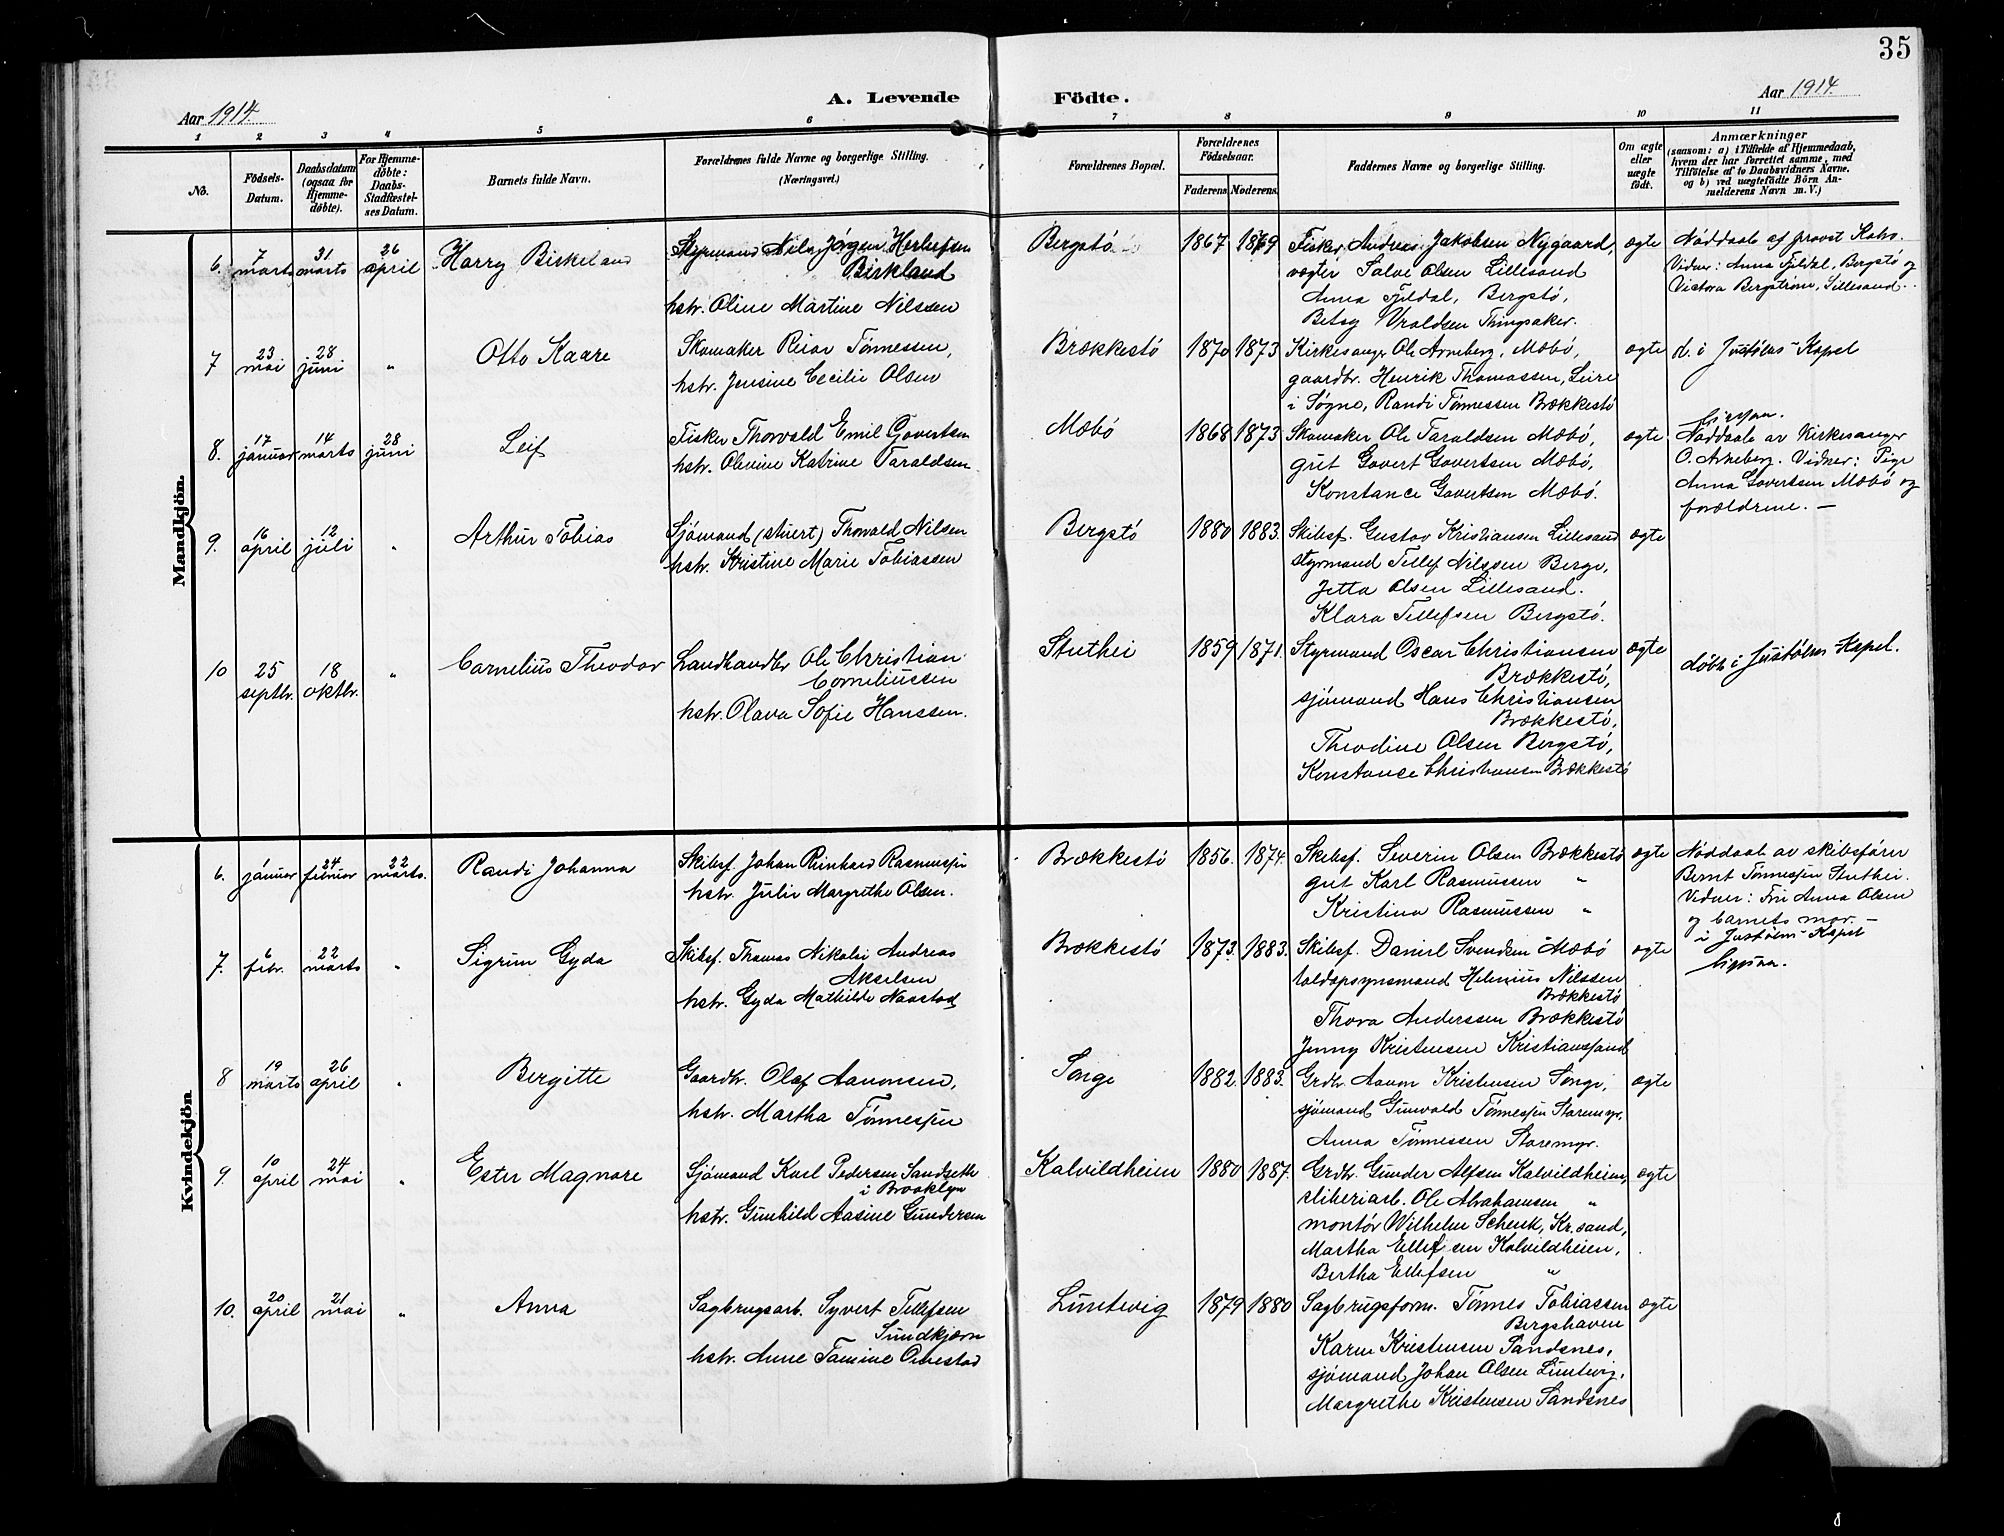 35
Aar 1914.
A. Levende
Födte.
Aar 1914.
1 2 3 4 5 6 7 8 9 10 11
No.
Födsels-
Datum.
Daabsdatum
(ogsaa for
Hjemme-
døbte).
For Hjemme-
döbte:
Daabs-
Stadfæstel-
ses Datum.
Barnets fulde Navn.
Forældrenes fulde Navne og borgerlige Stilling.
(Næringsvei.)
Forældrenes Bopæl.
Forældrenes
Födselsaar.
Faderens. Moderens.
Faddernes Navne og borgerlige Stilling.
Om ægte
eller
uægte
födt.
Anmærkninger
(saasom: a) i Tilfælde af Hjemmedaab,
hvem der har forrettet samme, med
Tilföielse af to Daabsvidners Navne,
og b) ved uægtefödte Börn An-
melderens Navn m. V.)
Mandkjön.
6. 7 marts 31 marts 26 april Harry Birkeland
Styrmand Nils Jørgen Herlefsen
Birkland
hstr. Oline Martine Nilssen
Bergstø 1867 1869
Fisker Andreas Jakobsen Nygaard,
vægter Salve Olsen Lillesand
Anna Fjeldal, Bergstø,
Betsy Vraldsen Tingsaker.
ægte
Nøddaab af provst
Vidner: Anna Fjeldal, Bergstø og
Victora Bergstrøm, Lillesand.
7 23 mai 28 juni " Otto Kaare
Skomaker Reiar Tønnessen,
hstr. Jensine Cecilie Olsen
Brækkestø 1870 1873
Kirkesanger Ole Arneberg, Mæbø,
gaardbr. Henrik Thomassen, Leire
i Søgne, Randi Tønnessen Brækkestø
ægte
d. i Justøens Kapel
8. 17 januar 14 marts 28 juni Leif
Fisker Thorvald Emil Govertsen
hstr. Olevine Katrine Taraldsen
Mæbø 1868 1873
Skomaker Ole Taraldsen Mæbø,
gut Govert Govertsen Mæbø,
Konstance Govertsen Mæbø.
ægte
ligesaa.
Nøddaab av Kirkesanger
O. Arneberg. Vidner: Pige
Anna Govertsen Mæbø og
forældrene. –
9. 16 april 12 juli " Arthur Tobias
Sjømand (stuert) Thorvald Nilsen
hstr. Kristine Marie Tobiassen
Bergstø 1880 1883.
Skibsf. Gustav Kristiansen Lillesand
styrmand Tellef Nilssen Berge,
Jetta Olsen Lillesand.
Klara Tellefsen Bergstø.
ægte
10 25 septbr. 18 oktbr. " Cornelius Theodor
Landhandler Ole Christian
Corneliussen
hstr. Olava Sofie Hanssen.
Stuthei 1859 1871.
Styrmand Oscar Christiansen
Brækkestø,
sjømand Hans Christiansen
Brækkestø,
Theodine Olsen Bergstø,
Konstance Christiansen Brækkestø
ægte
døbt i Justøens Kapel.
Kvindekjön
6. januar 24 februar 22 marts. Randi Johanna
Skibsf. Johan Reinhard Rasmussen
hstr. Julie Margrethe Olsen.
Brækkestø 1856. 1874.
Skibsf. Severin Olsen Brækkestø
gut Karl Rasmussen "
Kristina Rasmussen "
ægte
Nøddaab av skibsfører
Bernt Tønnessen Stuthei.
Vidner: Fru Anna Olsen
og barnets mor. –
i Justøens Kapel
7. 6 febr. 22 marts " Sigrun Gyda
Skibsf. Thomas Nikolai Andreas
Akselsen
hstr. Gyda Mathilde Naastad
Brækkestø 1873. 1883.
Skibsf. Daniel Svendsen Mæbø
toldopsynsmand Helenius Nilssen
Brækkestø
Thora Anderssen Brækkestø
Jenny Kristensen Kristianssand
ægte
ligesaa.
8 19 marts 26 april " Bergitte
Gaardbr. Olaf Aanonsen,
hstr. Martha Tønnessen
Songe 1882. 1883.
Grdbr. Aanon Kristensen Songe,
sjømand Gunvald Tønnessen Staremyr,
Anna Tønnessen Staremyr.
ægte
9. 10 april 24 mai " Ester Magnore
Sjømand Karl Pedersen Sandsette
i Brooklyn
hstr. Gunhild Aasine Gundersen
Kalvildheien 1880 1887.
Grdbr. Gunder Alfsen Kalvildheien,
sliberiarb. Ole Abrahamsen "
montør Wilhelm Schenk, Kr.sand,
Martha Ellefsen Kalvildheien,
Bertha Ellefsen "
ægte
10. 20 april 21 mai " Anna
Sagbrugsarb. Syvert Tellefsen
Sundkjærn
hstr. Anne Tamine Omestad
Luntevig 1879 1880
Sagbrugsform. Tønnes Tobiassen
Bergshaven
Karen Kristensen Sandsnes,
sjømand Johan Olsen Luntevig,
Margrethe Kristensen Sandsnes
ægte